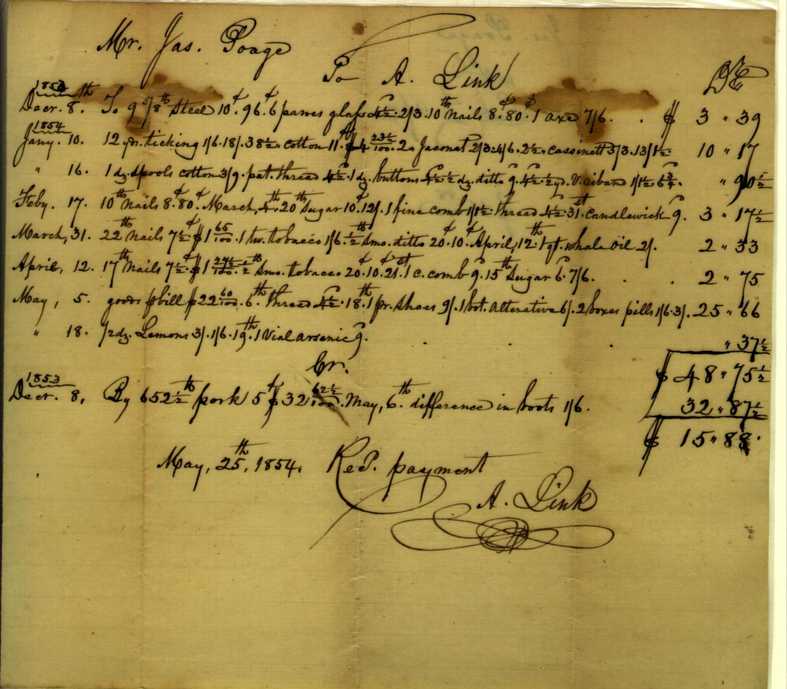 Mr. Jas. Poage
To A. Link D C
1853
Decr. 8. To 9 5/8 lb Steel 10¢ 96¢ 6 panes glass 4½ 2/3. 10 lb Nails 8¢ 80¢ 1 axe 7/6. $ 3 " 39
1854
Jany. 10. 12 yr. ticking 1/6. 18/. 38½ cotton 11¢ $4 23½/100. 2 Jaconet 2/3. 4/6. 2½ Cassinett 5/3. 13/1½ 10 " 17
" 16. 1 dz. spools cotton 3/9. pat. thread 4½. 1 dz. buttons 4½. ½ dz. ditto 9. yd. 1/1½ 6¾. " 90½
Feby. 17. 10 lb Nails 8¢ 80¢ March, 4th 20 lb Sugar 10¢ 12/. 1 fine comb 1/1½ thread 4½ 3/. candlewick 9. 3 " 17½
March, 31. 22 lb Nails 7½¢ $1 65/100. 1 tw. tobacco 1/6. ½ lb Smo. ditto 20¢ 10¢ April, 12th 1 qt. whale oil 2/. 2 " 33
April, 12. 17 lb Nails 7½¢ $1 27½/100. ½ lb Smo. tobacco 20¢ 10. 21st 1 c. comb 9. 15 lb Sugar 6. 7/6. 2 " 75
May, 5. goods pr bill $22 60/100. 6th thread 4½. 18th 1 pr. shoes 9/. 1 bot. alterative 6/. 2 boxes pills 1/6. 3/. 25 " 66
" 18. 1/2 dz. Lemons 3/. 1/6. 19th 1 vial arsenic 9. " 37½
Cr. $ 48 " 75½
1853
Decr. 8, By 652½ lb pork 5¢ $32 62½/100. May, 6th difference in boots 1/6. 32 " 87½
$ 15 " 88.
May, 25th, 1854. Recd. payment
A. Link